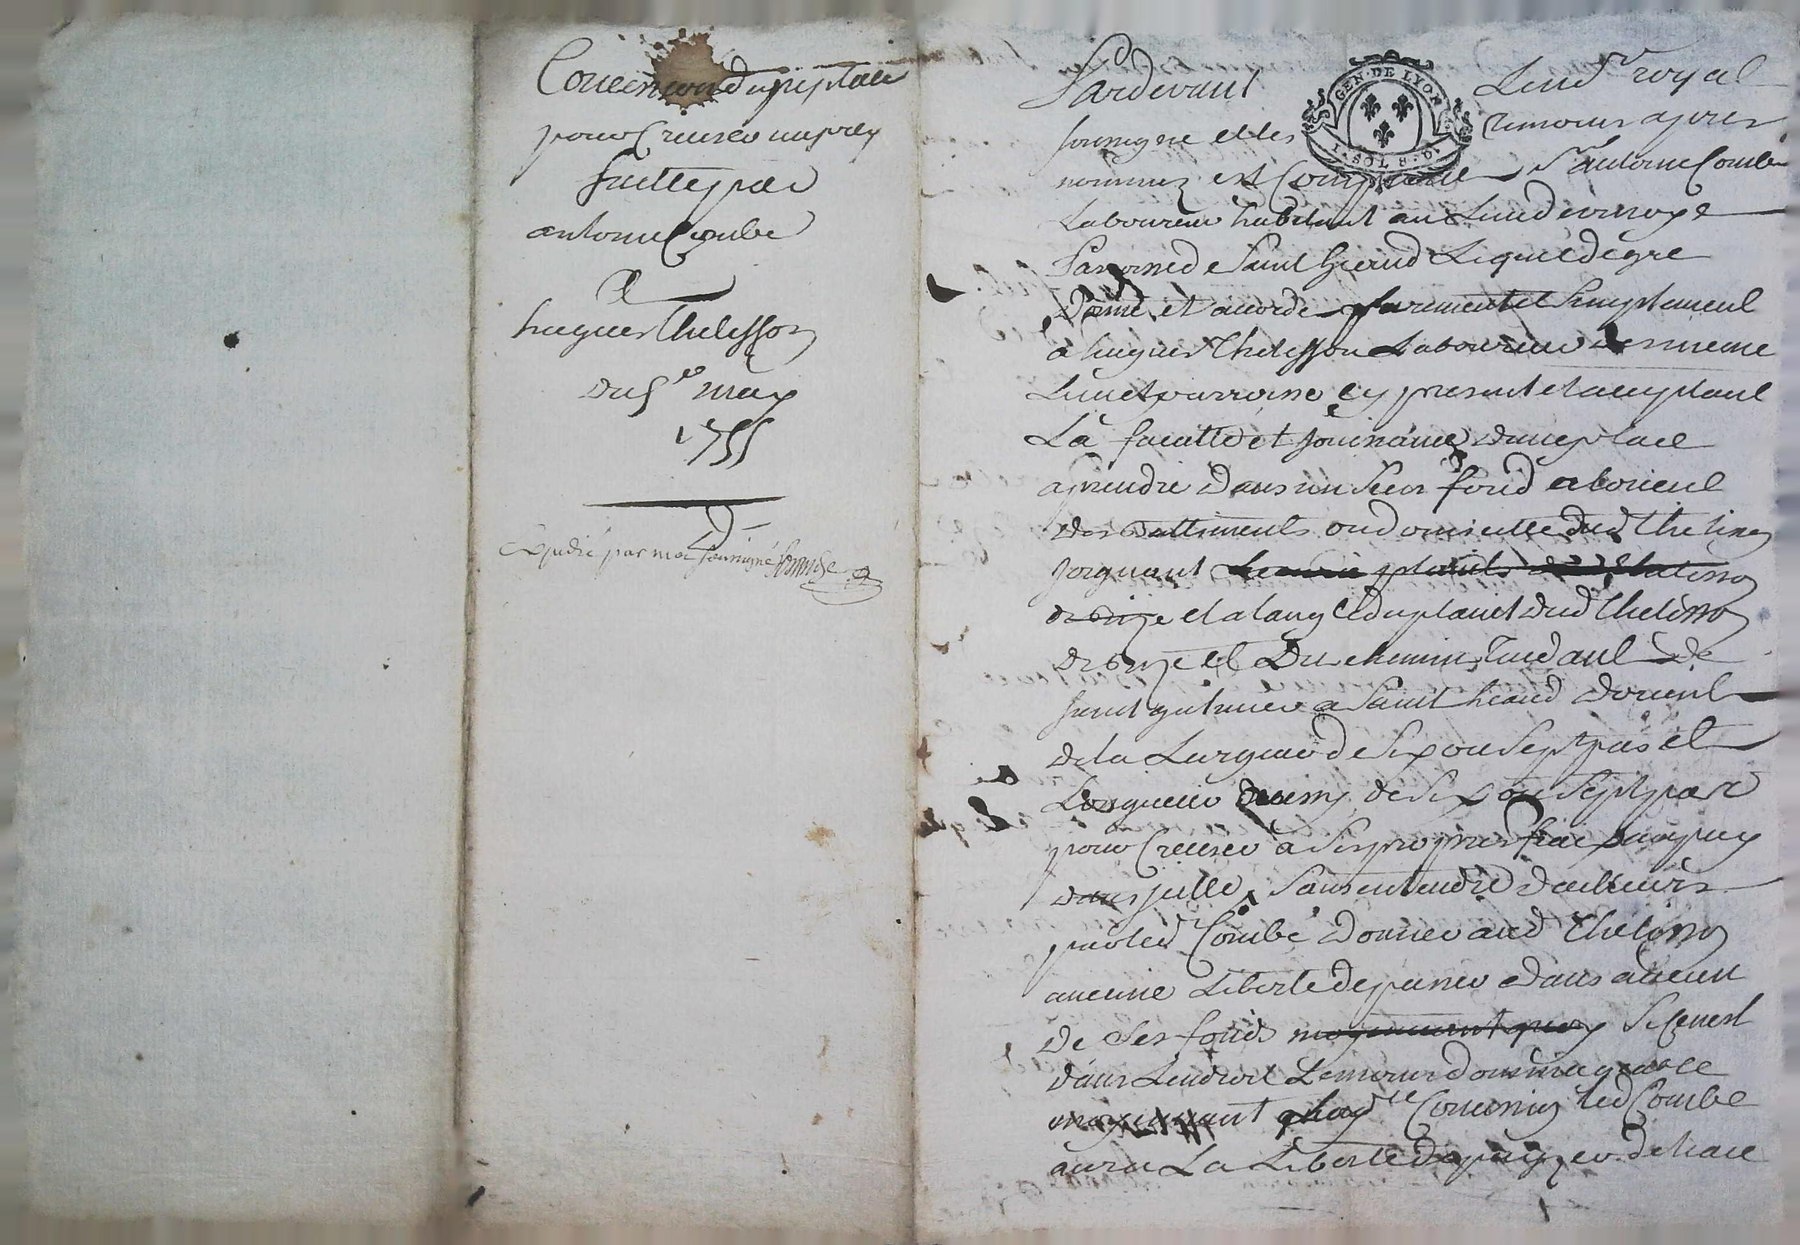 Convention du puy place
pour Creuser un puy
faitte par
antoine Combe
A
hugues Thelisson
du 5e may
1755
Expedié par moi soussigné
Pardevant Le nore royal
GEN · DE LYON
1 · SOL 8 · D
soussigné et les temoins apres
nommez est Comparu Sr antoine Combe
Laboureur habitant au Lieu
Parroisse de Saint heand Lequel de gre
Donne et accorde purement et Simplement
a hugues Thelisson Laboureur du meme
Lieu et parroisse Cy present et acceptant
La faculté et Jouissance d'une place
a prendre dans un Sien fond
des battiments ou domicille dud Thelisson
Joignant
et a langle du planet dud Thelisson
de bize et Du chemin Tendant de
Saint galmier a Saint heand
de la Largeur de Six ou Sept pas et
Longueur aussy de Six ou Sept pas
pour Creuser a Ses propres frais un puy
dans Jcelle, Sans entendre d'ailleurs
par led Sr Combe donner aud Thelisson
aucune Liberté de passer dans aucun
de Ses fonds moyennant quoy Si Ce n'est
dans Lendroit Le moins domageable
moyennant Convenu led Combe
aura La Liberté de puizer de Leau